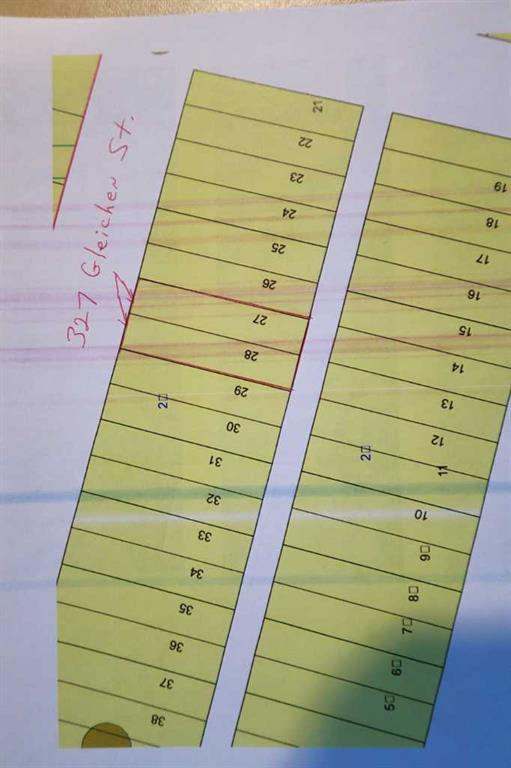 327 Gleichen St.
21
22
23
24
25
26
27
28
29
30
31
32
33
34
35
36
37
38
2□
19
18
17
16
15
14
13
12
11
10
9□
8□
7□
6□
5□
2□